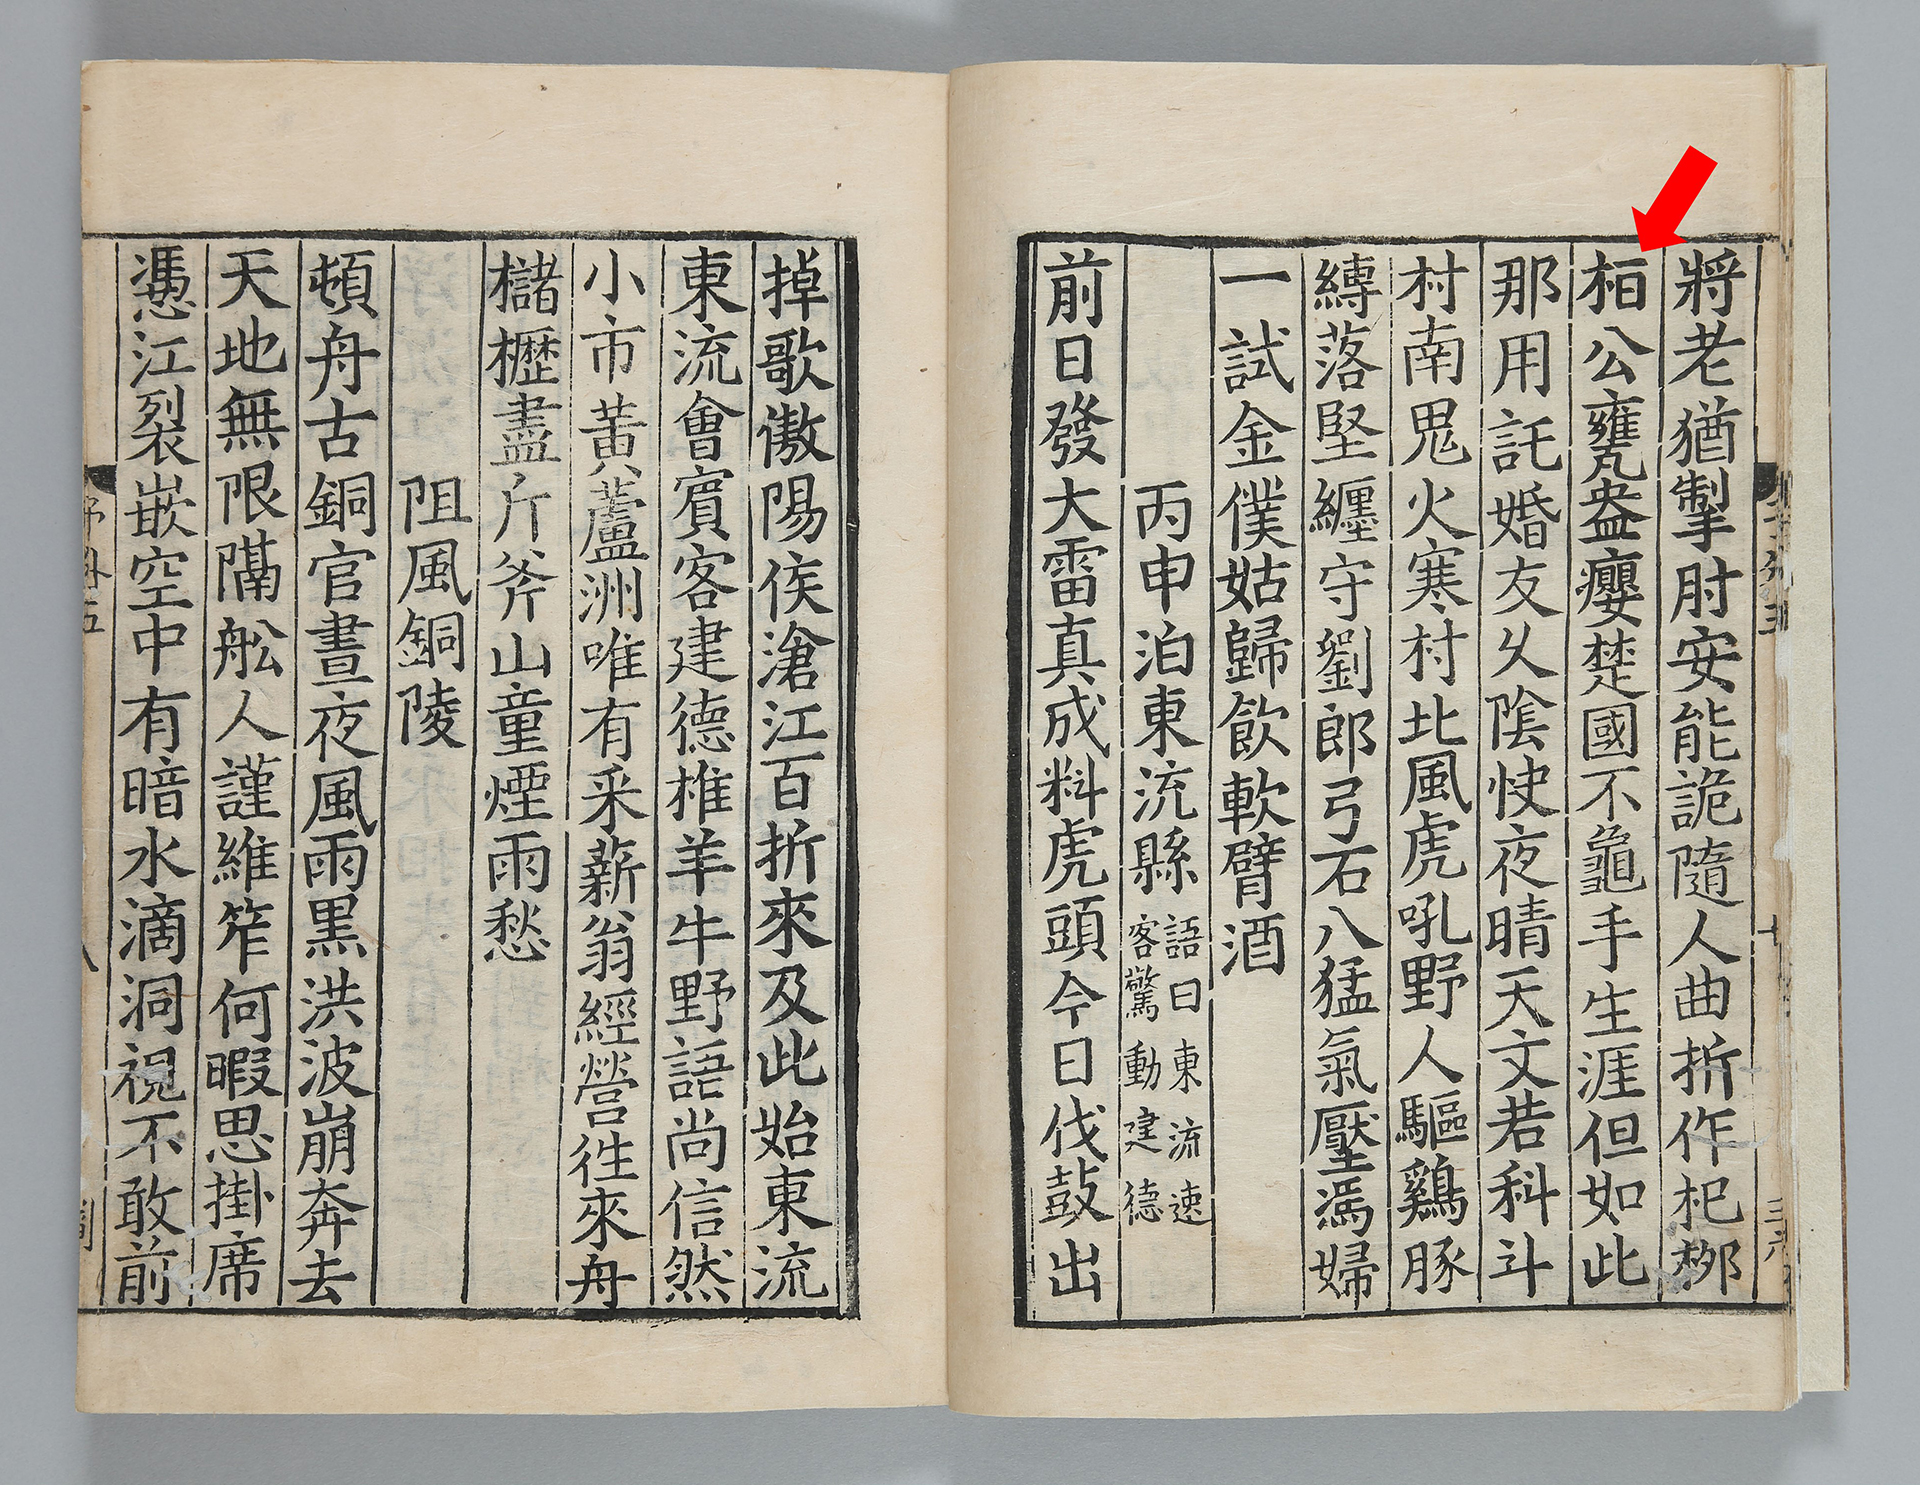 將老猶掣肘安能詭隨人曲折作杞栁
桓公甕盎癭楚國不龜手生涯但如此
那用託婚友乆陰快夜晴天文若科斗
村南鬼火寒村北風虎吼野人驅鷄豚
縛落堅纏守劉郎弓石八猛氣壓馮婦
一試金僕姑歸飲軟臂酒
丙申泊東流縣
語曰東流速
客驚動建德
前日發大雷真成料虎頭今日伐鼓出
掉歌傲陽侯滄江百折來及此始東流
東流會賓客建德椎羊牛野語尚信然
小市黃蘆洲唯有采薪翁經營徃來舟
櫧櫪盡斤斧山童煙雨愁
阻風銅陵
頓舟古銅官晝夜風雨黑洪波崩奔去
天地無限隔舩人謹維笮何暇思掛席
憑江裂嵌空中有暗水滴洞視不敢前